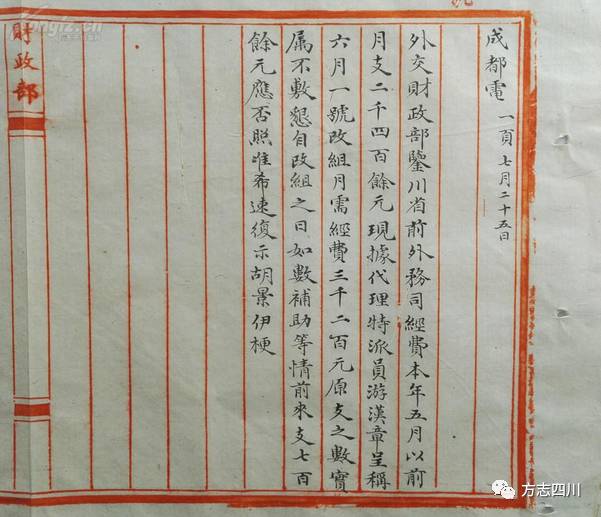 成都電 一頁 七月二十五日
外交財政部鑒川省前外務司經費本年五月以前
月支二千四百餘元現據代理特派員游漢章呈稱
六月一號改組月需經費三千二百元原支之數實
屬不敷懇自改組之日如數補助等情前來支七百
餘元應否照准希速復示胡景伊梗
財政部
方志四川